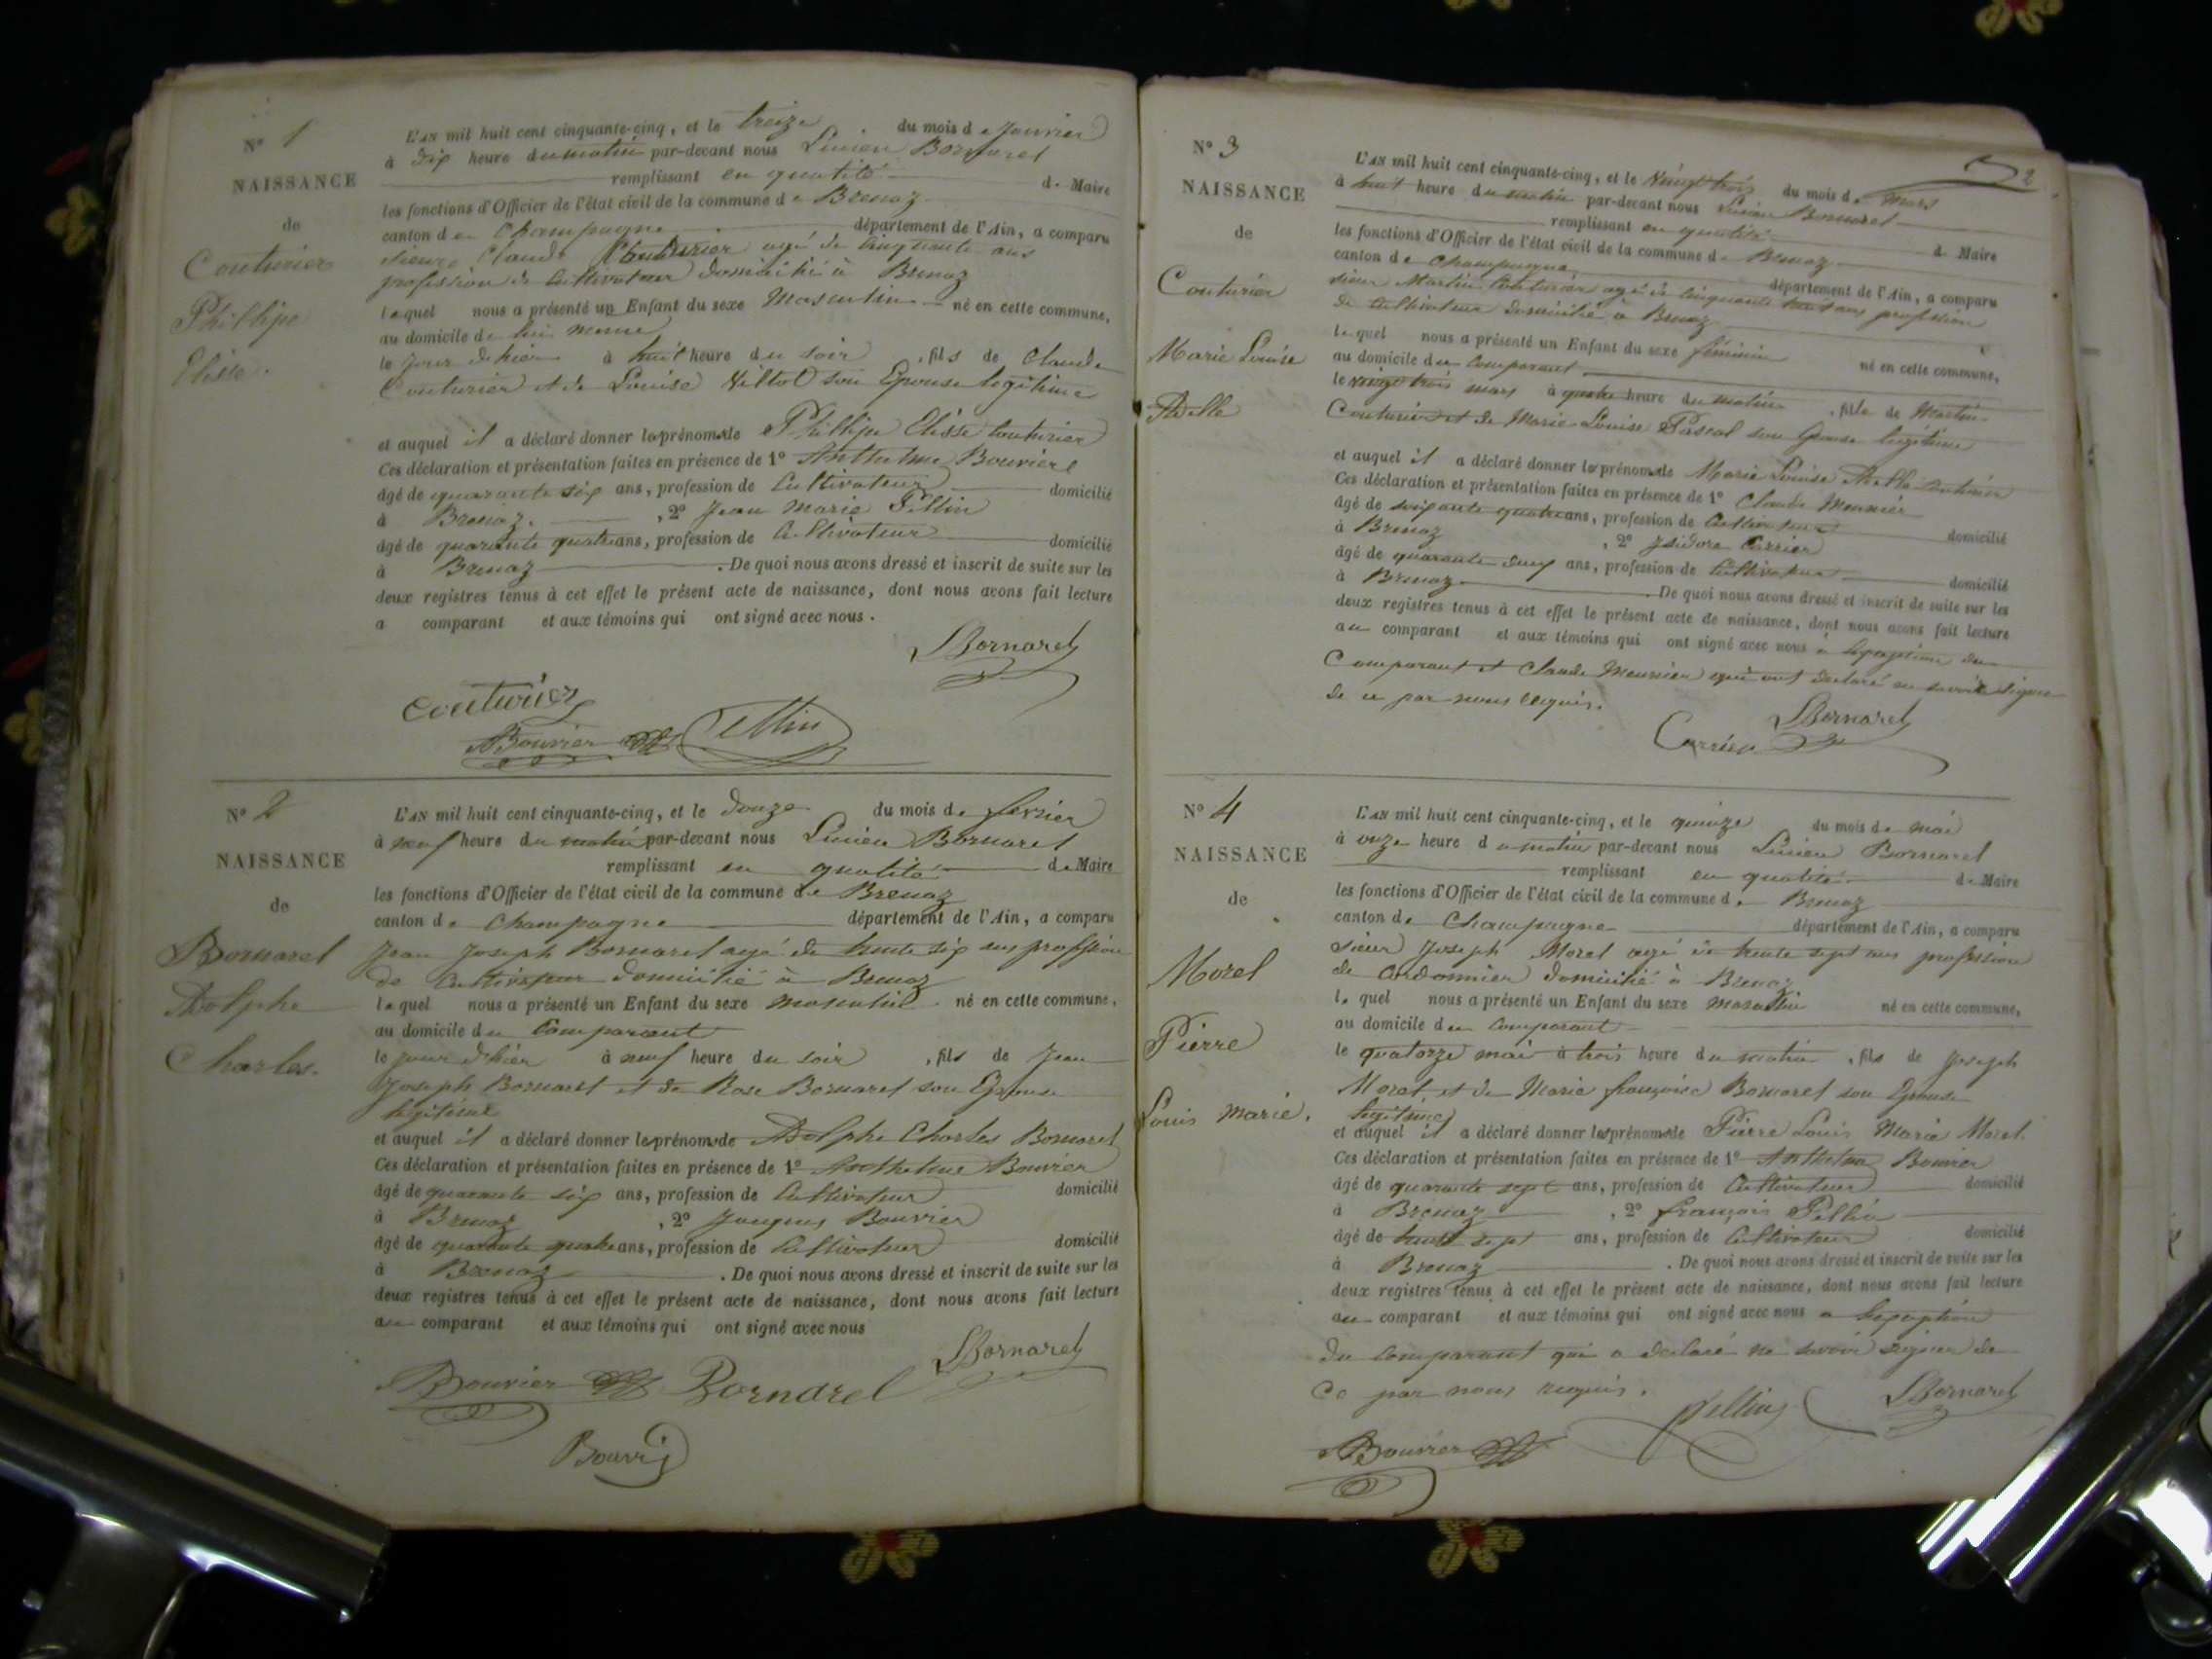 N° 1
NAISSANCE
de
Couturier
Phillipe
Elisse.
L'AN mil huit cent cinquante-cinq, et le treize du mois de Janvier
à dix heure du matin par-devant nous Lucien Bornarel
remplissant en qualité de Maire
les fonctions d'Officier de l'état civil de la commune de Brenaz
canton de Champagne département de l'Ain, a comparu
sieur Claude Couturier agé de cinquante ans
profession de Cultivateur domicilié à Brenaz
lequel nous a présenté un Enfant du sexe Masculin né en cette commune,
au domicile de lui meme
le jour d'hier à huit heure du soir , fils de Claude
Couturier et de Louise son Epouse legitime
et auquel il a déclaré donner les prénoms de Phillipe Elisse Couturier
Ces déclaration et présentation faites en présence de 1° Anthelme Bouvier
âgé de quarante six ans, profession de Cultivateur domicilié
à Brenaz. , 2° Jean Marie Pellin
âgé de quarante quatre ans, profession de Cultivateur domicilié
à Brenaz . De quoi nous avons dressé et inscrit de suite sur les
deux registres tenus à cet effet le présent acte de naissance, dont nous avons fait lecture
a comparant et aux témoins qui ont signé avec nous.
LBornarel
Couturier
ABouvier Pellin
N° 2
NAISSANCE
de
Bornarel
Adolphe
Charles.
L'AN mil huit cent cinquante-cinq, et le douze du mois de fevrier
à neuf heure du matin par-devant nous Lucien Bornarel
remplissant en qualité de Maire
les fonctions d'Officier de l'état civil de la commune de Brenaz
canton de Champagne département de l'Ain, a comparu
Jean Joseph Bornarel agé de trente six ans proffession
de Cultivateur domicilié à Brenaz
lequel nous a présenté un Enfant du sexe masculin né en cette commune,
au domicile du Comparant
le jour d'hier à neuf heure du soir , fils de Jean
Joseph Bornarel et de Rose Bornarel son Epouse
legitime
et auquel il a déclaré donner les prénoms de Adolphe Charles Bornarel
Ces déclaration et présentation faites en présence de 1° Anthelme Bouvier
âgé de quarante six ans, profession de Cultivateur domicilié
à Brenaz , 2° Jacques Bouvier
âgé de quarante quatre ans, profession de Cultivateur domicilié
à Brenaz . De quoi nous avons dressé et inscrit de suite sur les
deux registres tenus à cet effet le présent acte de naissance, dont nous avons fait lecture
au comparant et aux témoins qui ont signé avec nous
LBornarel
ABouvier Bornarel
Bouvier
2
N° 3
NAISSANCE
de
Couturier
Marie Louise
Adelle
L'AN mil huit cent cinquante-cinq, et le Vingt trois du mois de Mars
à huit heure du matin par-devant nous Lucien Bornarel
remplissant en qualité de Maire
les fonctions d'Officier de l'état civil de la commune de Brenaz
canton de Champagne département de l'Ain, a comparu
sieur Martin Couturier agé de cinquante huit ans profession
de Cultivateur domicilié à Brenaz
lequel nous a présenté un Enfant du sexe féminin né en cette commune,
au domicile du comparant
le vingt trois mars à quatre heure du matin , fille de Martin
Couturier et de Marie Louise Pascal son Epouse legitime
et auquel il a déclaré donner les prénoms de Marie Louise Adelle Couturier
Ces déclaration et présentation faites en présence de 1° Claude Meunier
âgé de soixante quatre ans, profession de Cultivateur domicilié
à Brenaz , 2° Isidore Carrier
âgé de quarante deux ans, profession de Cultivateur domicilié
à Brenaz . De quoi nous avons dressé et inscrit de suite sur les
deux registres tenus à cet effet le présent acte de naissance, dont nous avons fait lecture
au comparant et aux témoins qui ont signé avec nous à lexception du
Comparant et Claude Meunier qui ont declaré ne savoir signer
de ce par nous requis.
LBornarel
Carrier
N° 4
NAISSANCE
de
Morel
Pierre
Louis Marie.
L'AN mil huit cent cinquante-cinq, et le quinze du mois de mai
à onze heure du matin par-devant nous Lucien Bornarel
remplissant en qualité de Maire
les fonctions d'Officier de l'état civil de la commune de Brenaz
canton de Champagne département de l'Ain, a comparu
sieur Joseph Morel agé de trente sept ans profession
de Cordonnier domicilié à Brenaz.
lequel nous a présenté un Enfant du sexe masculin né en cette commune,
au domicile du comparant
le quatorze mai à trois heure du matin , fils de Joseph
Morel et de Marie françoise Bornarel son Epouse
legitime
et auquel il a déclaré donner les prénoms de Pierre Louis Marie Morel.
Ces déclaration et présentation faites en présence de 1° Anthelme Bouvier
âgé de quarante sept ans, profession de Cultivateur domicilié
à Brenaz , 2° françois Pellin
âgé de trente sept ans, profession de Cultivateur domicilié
à Brenaz . De quoi nous avons dressé et inscrit de suite sur les
deux registres tenus à cet effet le présent acte de naissance, dont nous avons fait lecture
au comparant et aux témoins qui ont signé avec nous a lexception
du comparant qui a declaré ne savoir signer de
ce par nous requis.
Pellin LBornarel
ABouvier